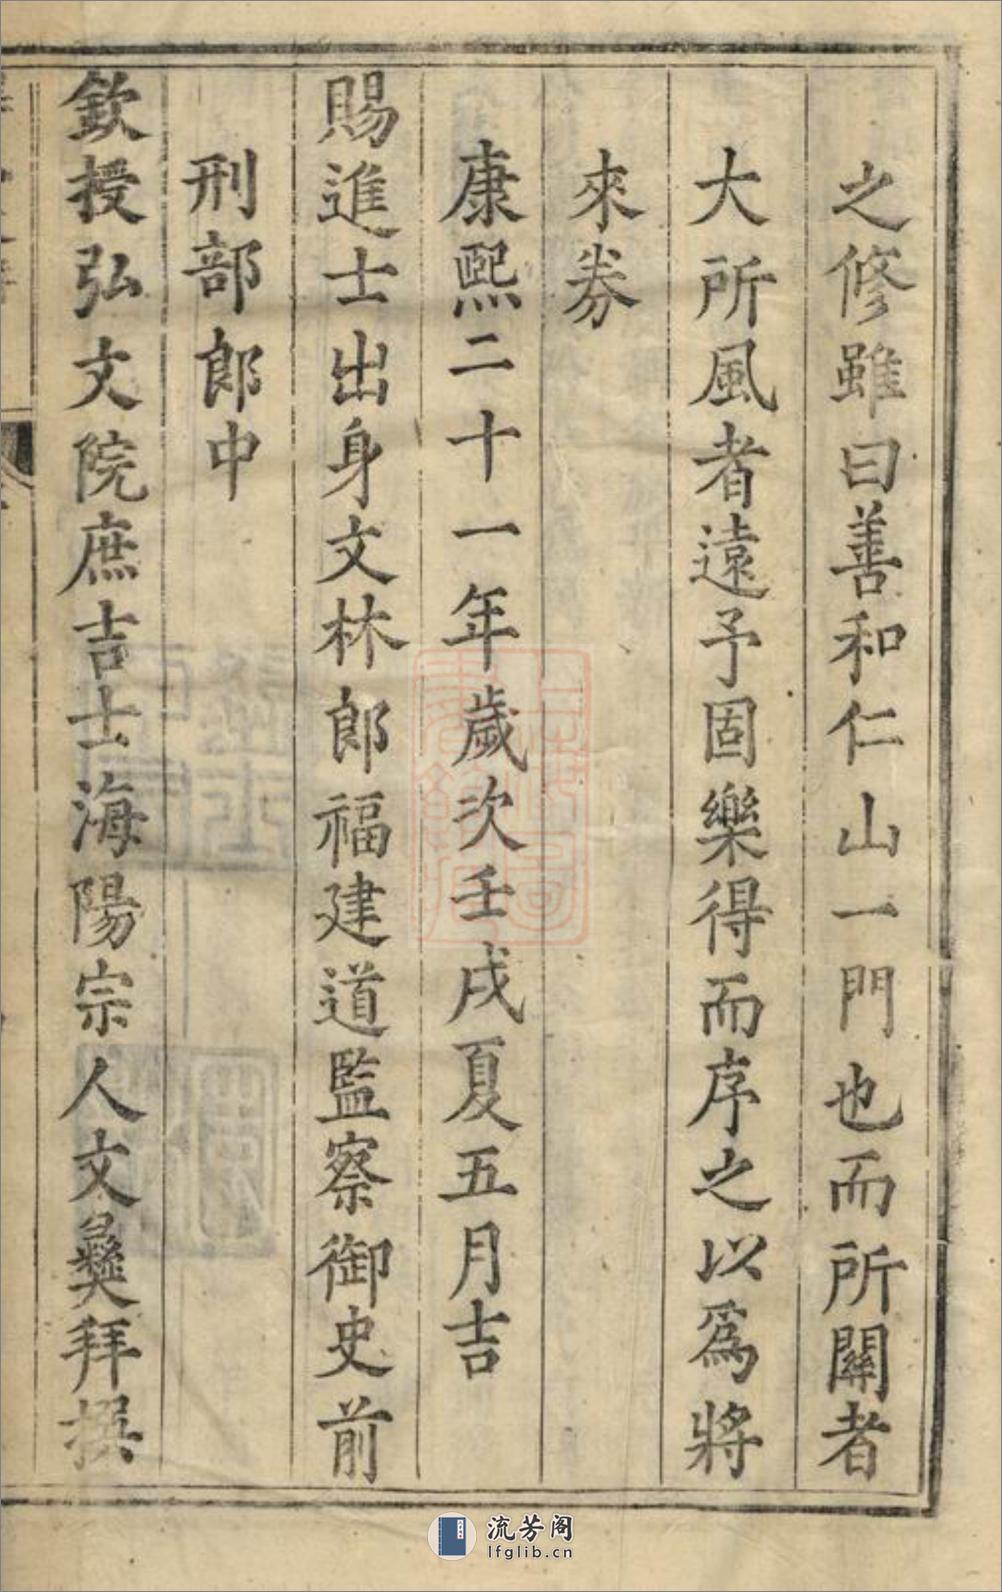 之修雖曰善和仁山一門也而所關者
大所風者遠予固樂得而序之以爲將
來券
康熙二十一年歲次壬戌夏五月吉
賜進士出身文林郎福建道監察御史前
刑部郎中
欽授弘文院庶吉士海陽宗人文彝拜撰
流芳阁
lfglib.cn